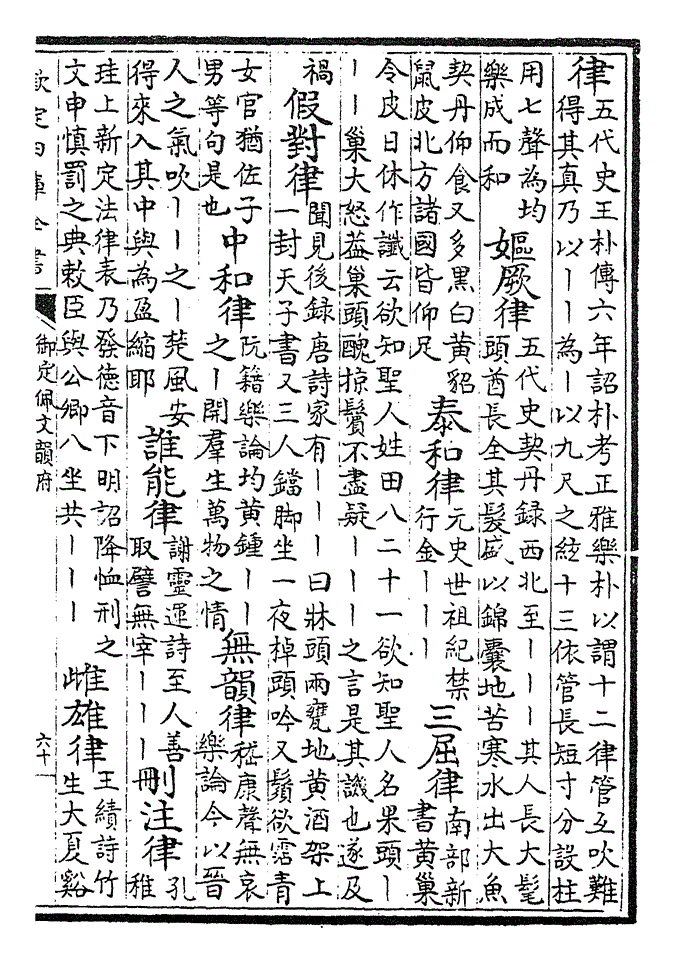 律
五代史王朴傳六年詔朴考正雅樂朴以謂十二律管互吹難
得其真乃以――為―以九尺之絃十三依管長短寸分設柱
用七聲為均
樂成而和
嫗厥律
五代史契丹録西北至―――其人長大髦
頭酋長全其髮盛以錦囊地苦寒水出大魚
契丹仰食又多黑白黄貂
鼠皮北方諸國皆仰足
泰和律
元史世祖紀禁
行金―――
三屈律
南部新
書黄巢
令皮日休作讖云欲知聖人姓田八二十一欲知聖人名果頭―
――巢大怒葢巢頭醜掠鬢不盡疑―――之言是其譏也遂及
禍
假對律
聞見後録唐詩家有―――曰牀頭兩甕地黄酒架上
一封天子書又三人鐺脚坐一夜掉頭吟又鬚欲霑青
女官猶佐子
男等句是也
中和律
阮籍樂論均黄鍾――
之―開羣生萬物之情
無韻律
嵇康聲無哀
樂論今以晉
人之氣吹――之―楚風安
得來入其中與為盈縮耶
誰能律
謝靈運詩至人善
取譬無宰―――
刪注律
孔
稚
珪上新定法律表乃發德音下明詔降恤刑之
文申慎罰之典敕臣與公卿八坐共―――
雌雄律
王績詩竹
生大夏谿
欽定四庫全書
御定佩文韻府
六十